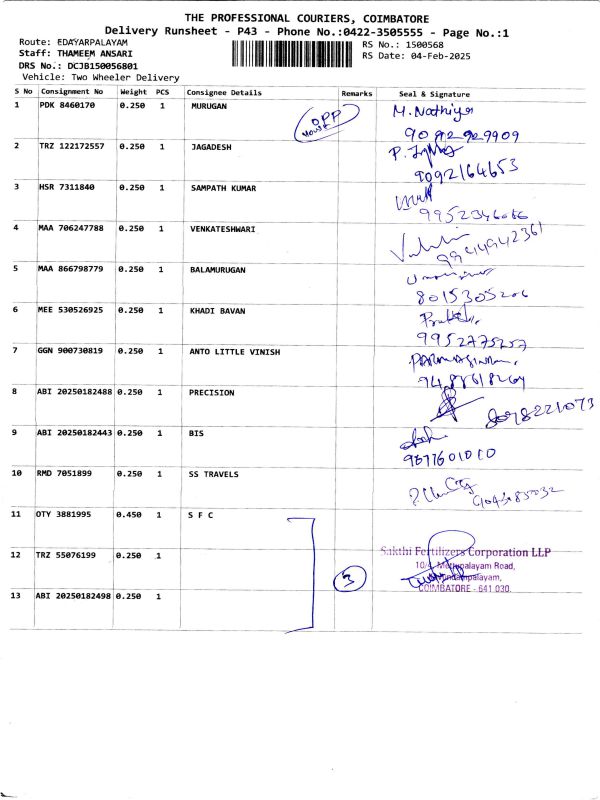 THE PROFESSIONAL COURIERS, COIMBATORE
Delivery Runsheet - P43 - Phone No.:0422-3505555 - Page No.:1
Route: EDAYARPALAYAM RS No.: 1500568
Staff: THAMEEM ANSARI RS Date: 04-Feb-2025
DRS No.: DCJB150056801
Vehicle: Two Wheeler Delivery
S No Consignment No Weight PCS Consignee Details Remarks Seal & Signature
1 PDK 8460170 0.250 1 MURUGAN OPP House M. Nathiya
2 TRZ 122172557 0.250 1 JAGADESH
9092164653
3 HSR 7311840 0.250 1 SAMPATH KUMAR
4 MAA 706247788 0.250 1 VENKATESHWARI
9944942361
5 MAA 866798779 0.250 1 BALAMURUGAN
8015305206
6 MEE 530526925 0.250 1 KHADI BAVAN
9952775257
7 GGN 900730819 0.250 1 ANTO LITTLE VINISH
8 ABI 20250182488 0.250 1 PRECISION
9 ABI 20250182443 0.250 1 BIS
10 RMD 7051899 0.250 1 SS TRAVELS
11 OTY 3881995 0.450 1 S F C
12 TRZ 55076199 0.250 1 3 Sakthi Fertilizers Corporation LLP
10/4, Mettupalayam Road,
13 ABI 20250182498 0.250 1 COIMBATORE - 641 030.